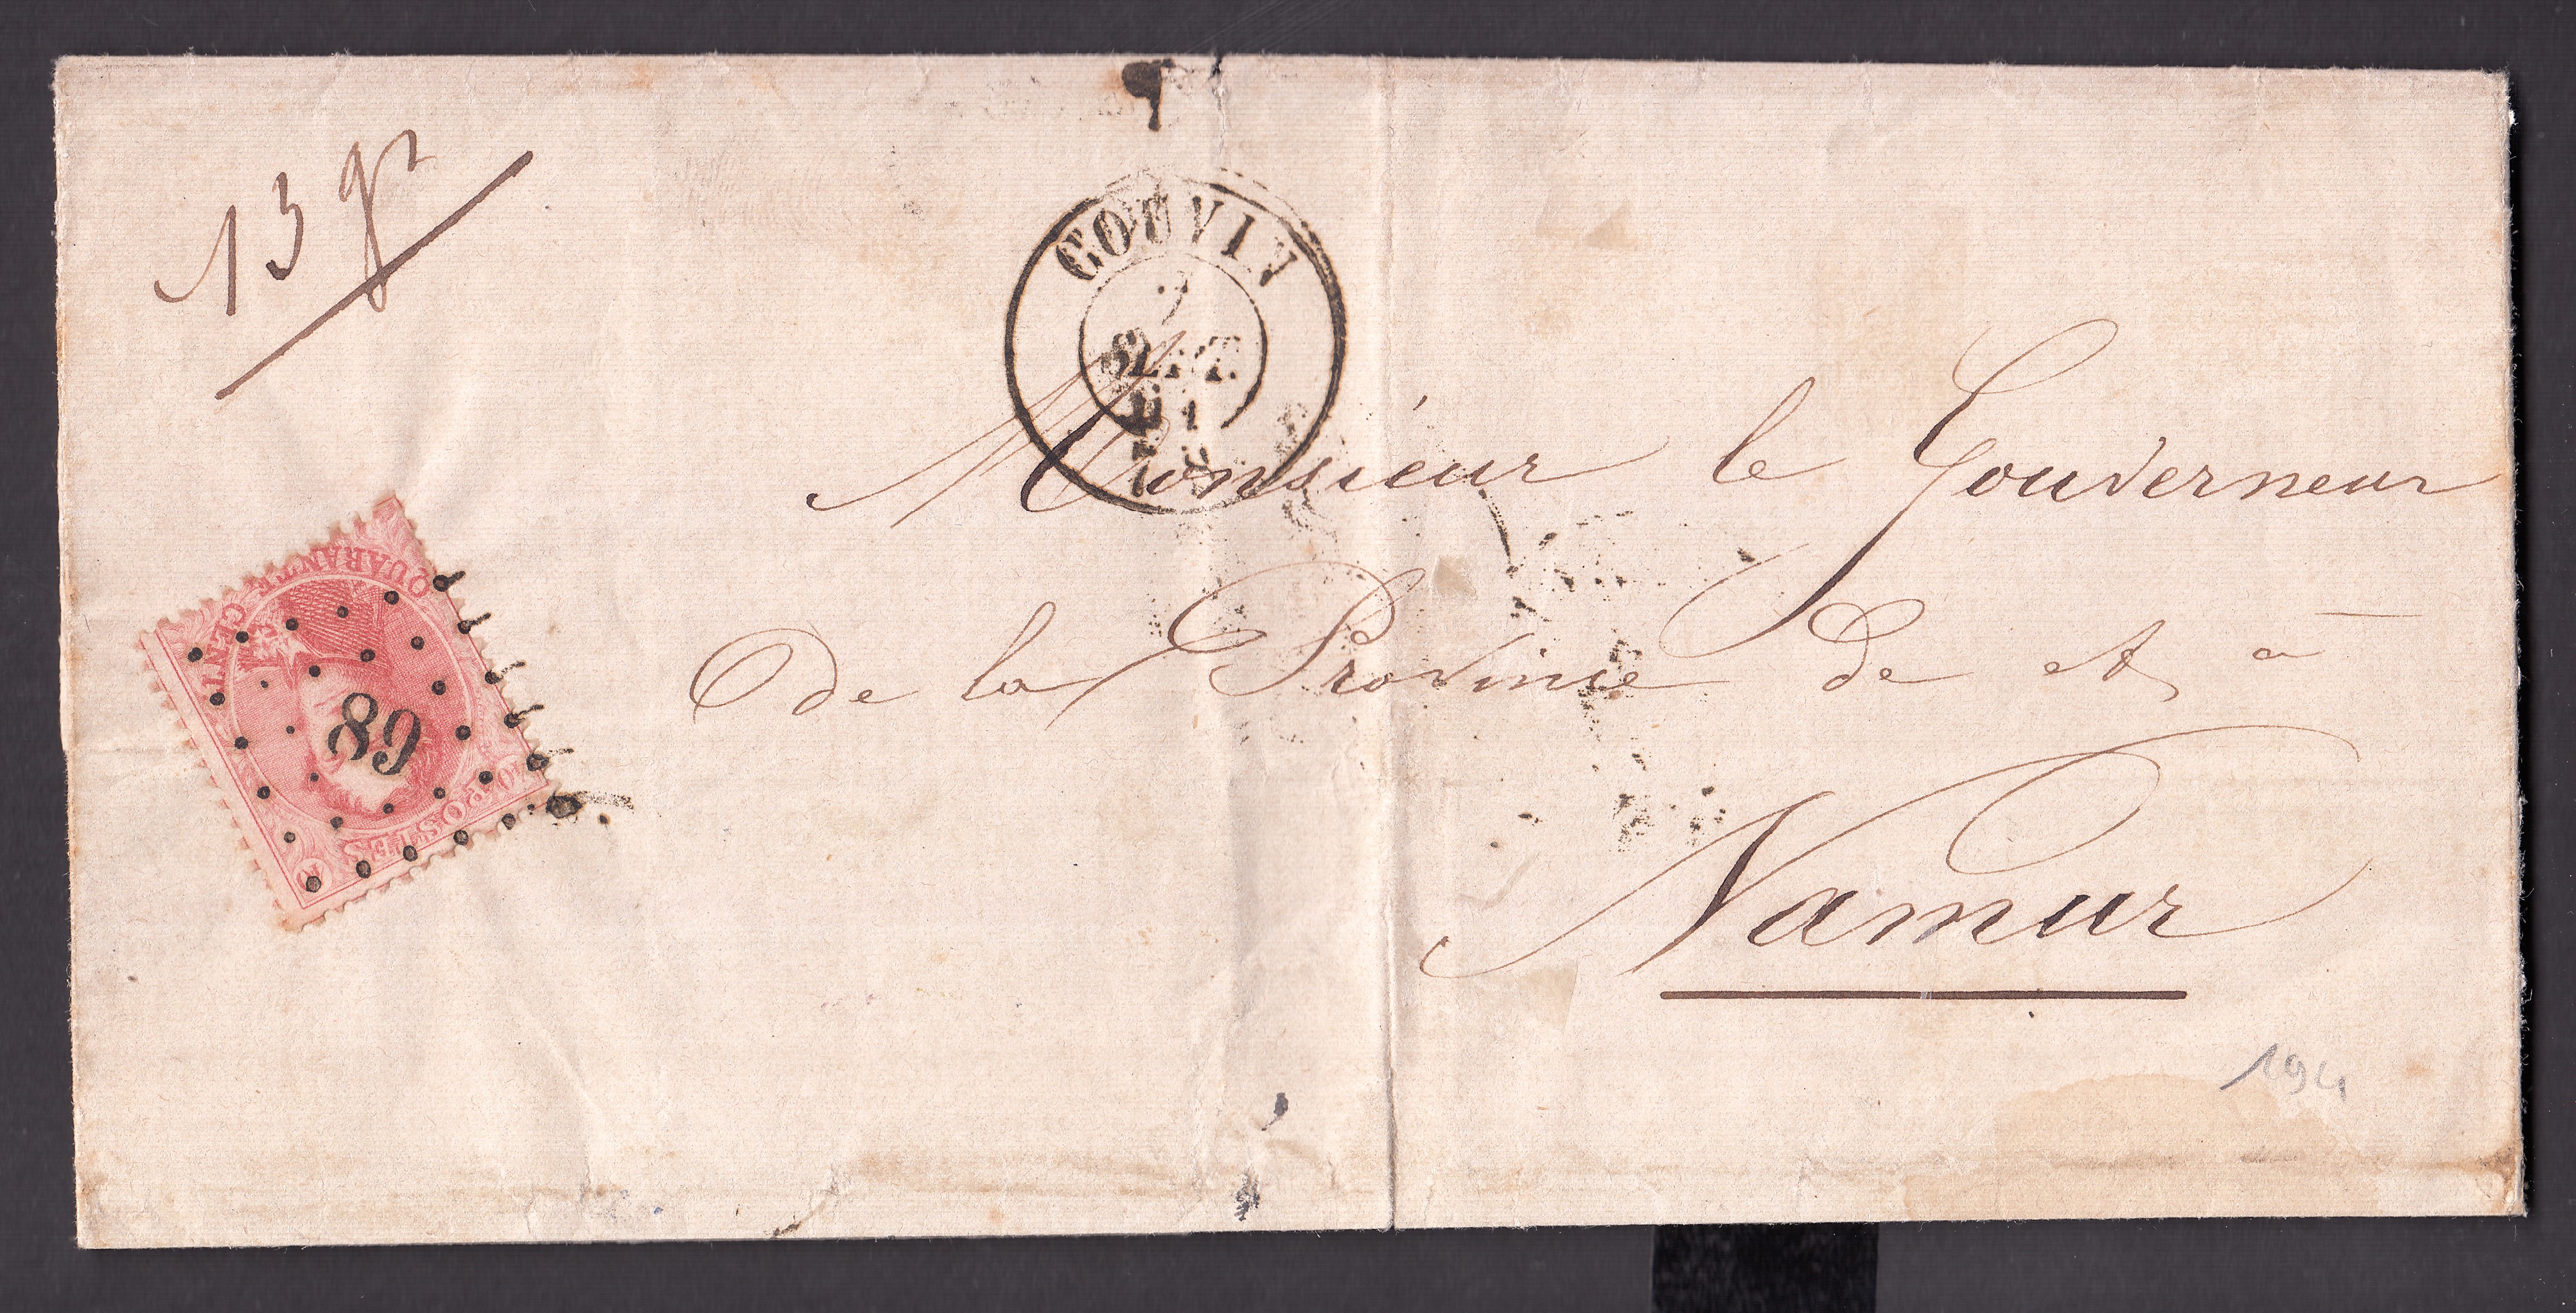 13 gr
COUVIN
7
SEPT.
Monsieur le Gouverneur
de la Province de et à
Namur
QUARANTE CENTI
89
POSTES
40
194